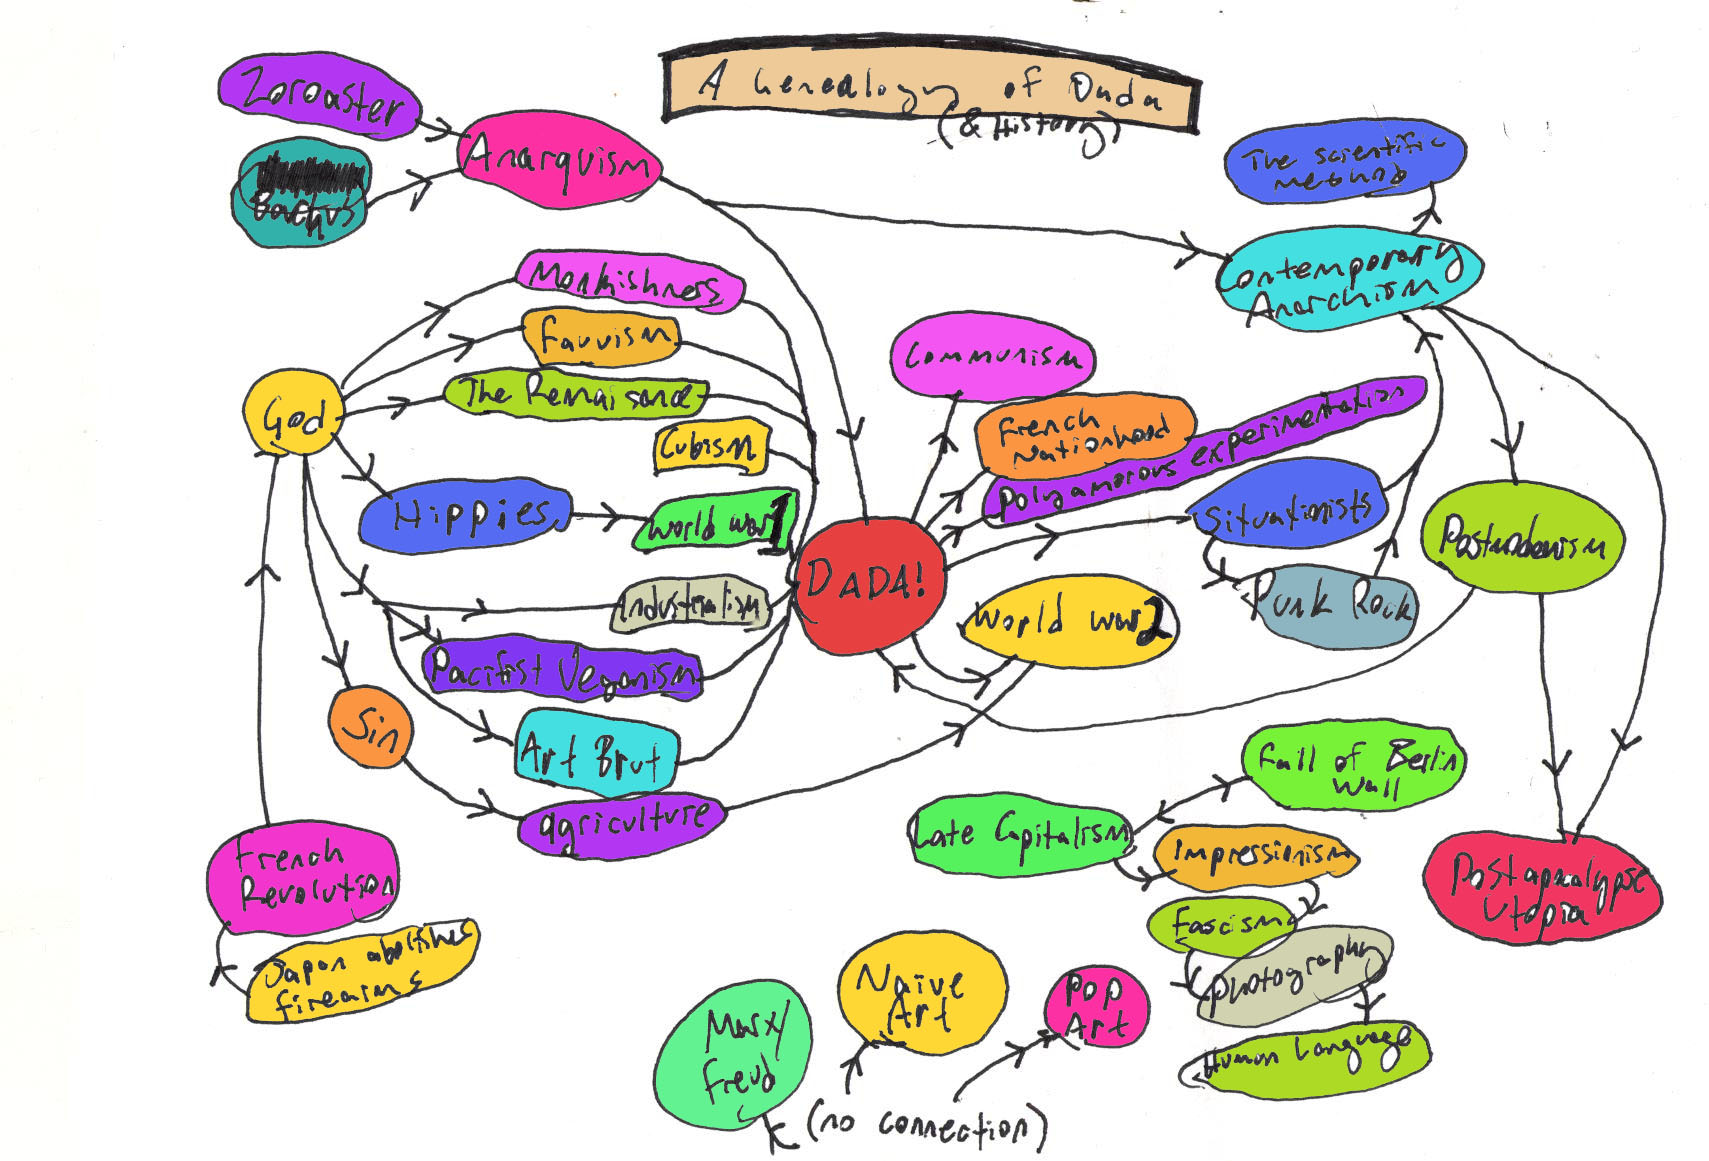 A Genealogy of Dada
(& History)
Zoroaster
Anarquism
Bachus
The scientific
method
Contemporary
Anarchism
Monkishness
Fauvism
The Renaisance
Cubism
God
Hippies
World War 1
Industrialism
Pacifist Veganism
Sin
Art Brut
agriculture
French
Revolution
Japan abolishes
firearms
DADA!
Communism
French
Nationhood
Polyamorous experimentation
Situationists
Punk Rock
World War 2
Postmodernism
Fall of Berlin
Wall
Late Capitalism
Impressionism
Fascism
Photography
Human Language
Postapocalypse
Utopia
Naïve
Art
Pop
Art
Marx/
Freud
(no connection)